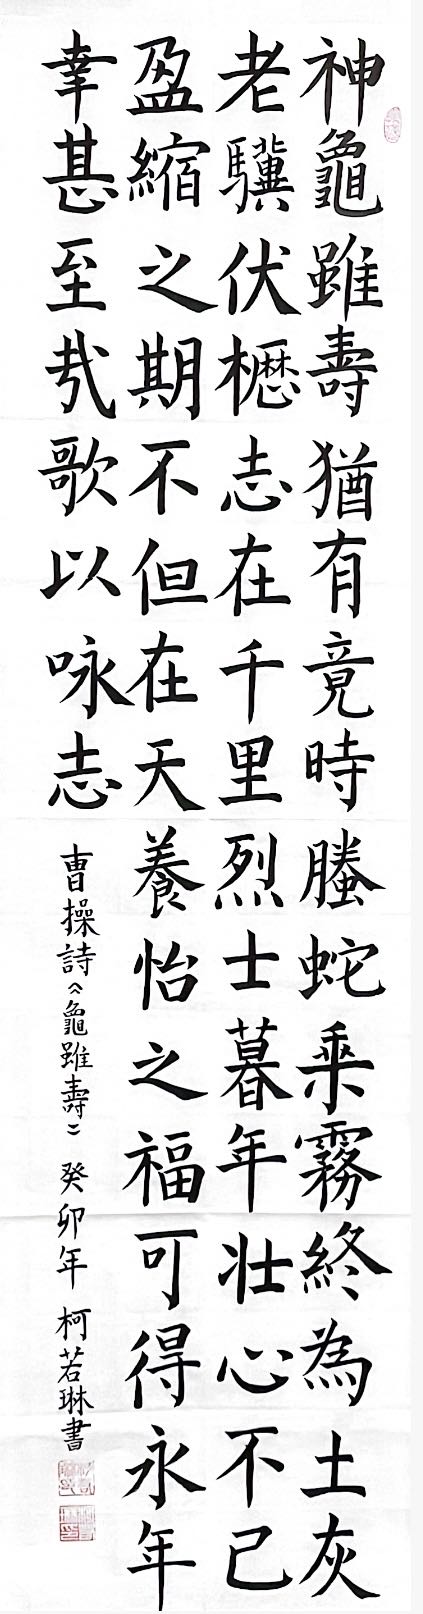 神龜雖壽猶有竟時螣蛇乘霧終為土灰
老驥伏櫪志在千里烈士暮年壯心不已
盈縮之期不但在天養怡之福可得永年
幸甚至哉歌以咏志
曹操詩《龜雖壽》 癸卯年 柯若琳書